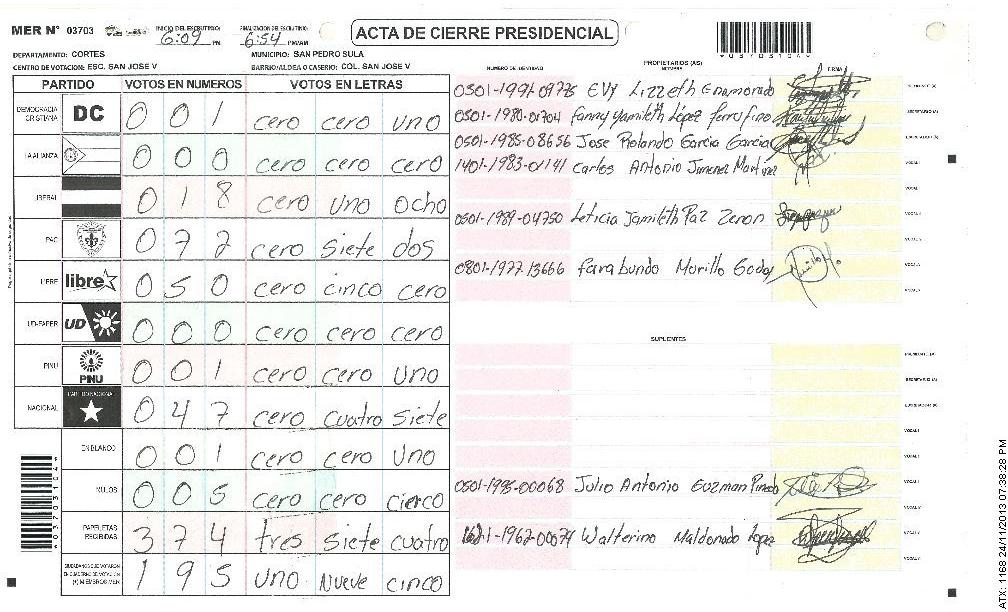 MER Nº 03703
INICIO DEL ESCRUTINIO: 6:09 PM
FINALIZACION DEL ESCRUTINIO: 6:54 PM/AM
ACTA DE CIERRE PRESIDENCIAL
DEPARTAMENTO: CORTES
MUNICIPIO: SAN PEDRO SULA
CENTRO DE VOTACION: ESC. SAN JOSE V
BARRIO/ALDEA O CASERIO: COL. SAN JOSE V
PARTIDO VOTOS EN NUMEROS VOTOS EN LETRAS
DEMOCRACIA CRISTIANA DC 0 0 1 cero cero uno
LA ALIANZA 0 0 0 cero cero cero
LIBERAL 0 1 8 cero uno ocho
PAC 0 7 2 cero siete dos
LIBRE libre 0 5 0 cero cinco cero
UD-FAPER UD 0 0 0 cero cero cero
PINU PINU 0 0 1 cero cero uno
NACIONAL PARTIDO NACIONAL 0 4 7 cero cuatro siete
EN BLANCO 0 0 1 cero cero uno
NULOS 0 0 5 cero cero cierco
PAPELETAS RECIBIDAS 3 7 4 tres siete cuatro
CIUDADANOS QUE VOTARON EN CUADERNO DE VOTACION (+) MIEMBROS MER 1 9 5 uno nueve cinco
PROPIETARIOS (AS)
NUMERO DE IDENTIDAD NOMBRE FIRMA
0501-1991-09775 Evy Lizzeth Enamorado
0501-1980-01704 Fanny Yamileth López Ferrufino
0501-1985-08656 Jose Rolando Garcia Garcia
1401-1983-01141 Carlos Antonio Jimenez Martinez
0501-1989-04750 Leticia Jamileth Paz Zenon
0801-1977-13666 Farabundo Murillo Godoy
SUPLENTES
0501-1995-00068 Julio Antonio Guzman Pineda
-1962-00074 Walterino Maldonado Lopez
ATX: 1168 24/11/2013 07:38:28 PM